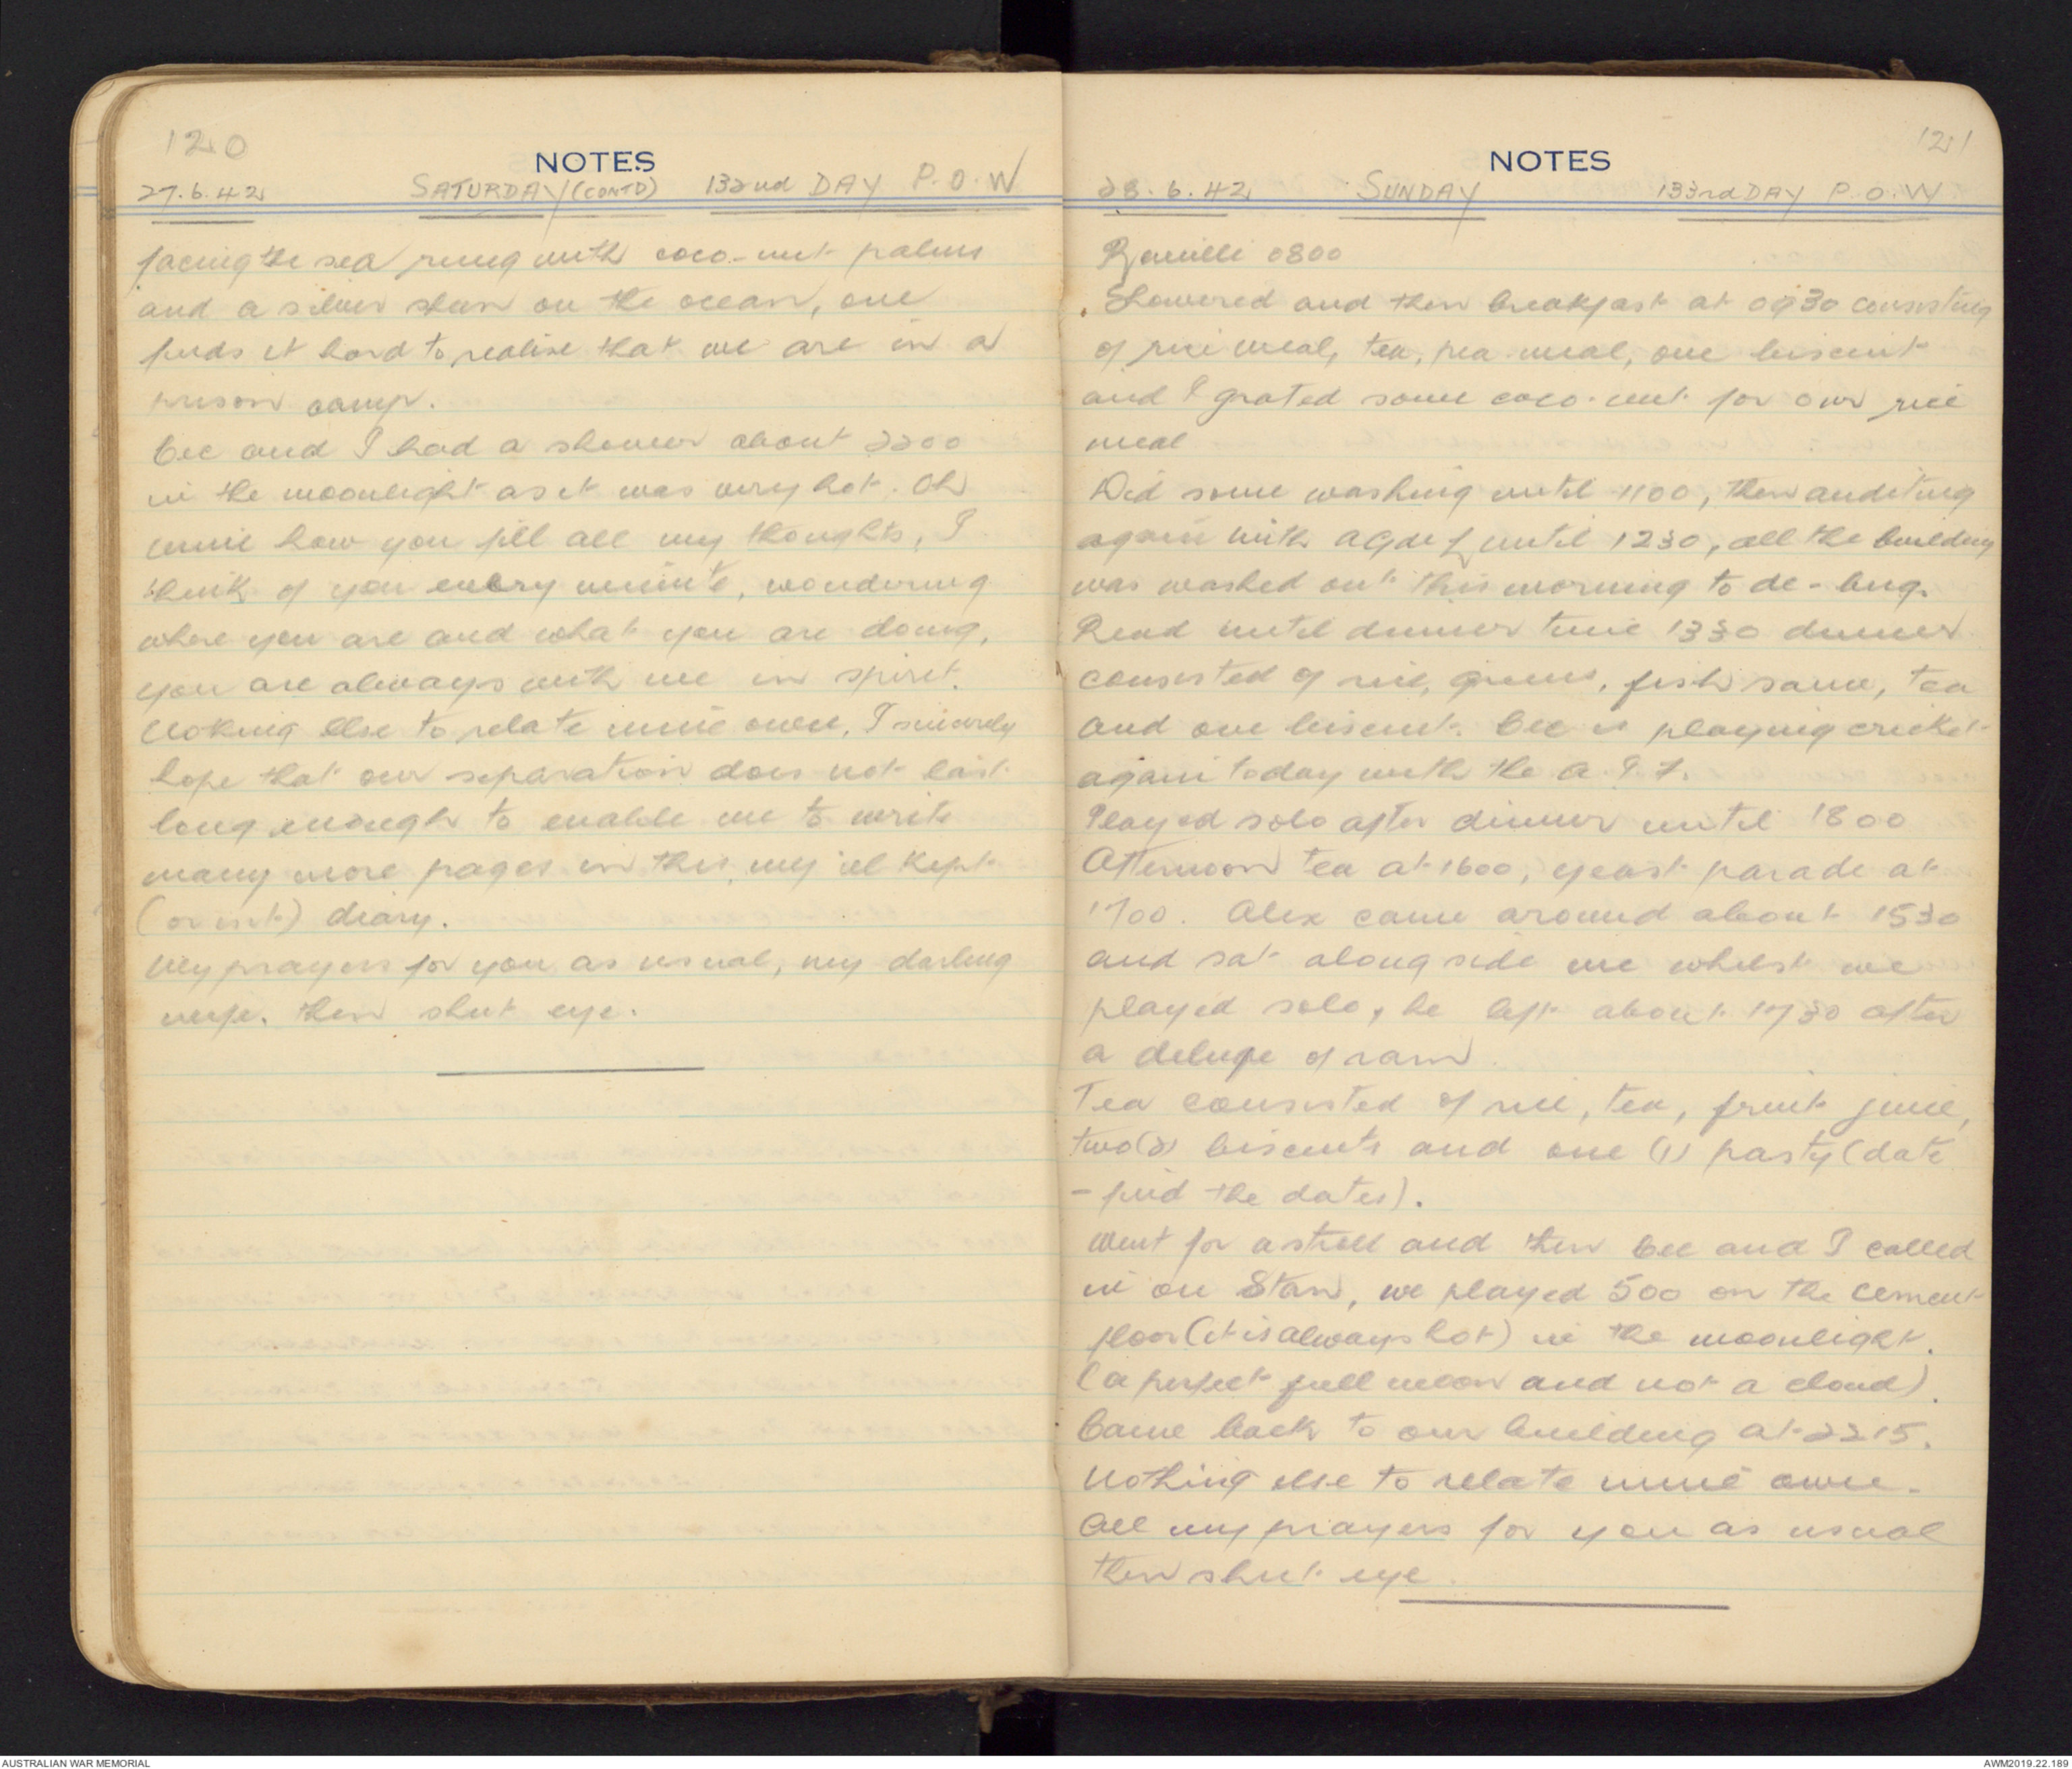 120
NOTES
27.6.42 SATURDAY (CONTD) 132nd DAY P.O.W
facing the sea ring with coco-nut palms
and a silver sheen on the ocean, one
finds it hard to realise that we are in a
prison camp.
Cec and I had a shower about 2200
in the moonlight as it was very hot. Oh
mine how you fill all my thoughts, I
think of you every minute, wondering
where you are and what you are doing,
you are always with me in spirit.
Nothing else to relate mine own, I sincerely
hope that our separation does not last
long enough to enable me to write
many more pages in this, my ill kept
(or isit) diary.
My prayers for you as usual, my darling
wife. then shut eye.
121
NOTES
28.6.42 SUNDAY 133rd DAY P.O.W
0800
Showered and then breakfast at 0930 consisting
of rice meal, tea, pea meal, one biscuit
and I grated some coco-nut for our rice
meal
Did some washing until 1100, then auditing
again with until 1230, all the building
was washed out this morning to de-bug.
Read until dinner time 1330 dinner
consisted of rice, greens, fish sauce, tea
and one biscuit. Cec is playing cricket
again today with the A.I.F.
Played solo after dinner until 1800
Afternoon tea at 1600, yeast parade at
1700. Alex came around about 1530
and sat along side me whilst we
played solo, he left about 1730 after
a deluge of rain.
Tea consisted of rice, tea, fruit juice,
two(2) biscuits and one (1) pasty (date
- find the dates).
Went for a stroll and then Cec and I called
in on Stan, we played 500 on the cement
floor (it is always hot) in the moonlight.
(a perfect full moon and not a cloud).
Came back to our building at 2215.
Nothing else to relate mine own.
All my prayers for you as usual
then shut eye.
AUSTRALIAN WAR MEMORIAL
AWM2019.22.189